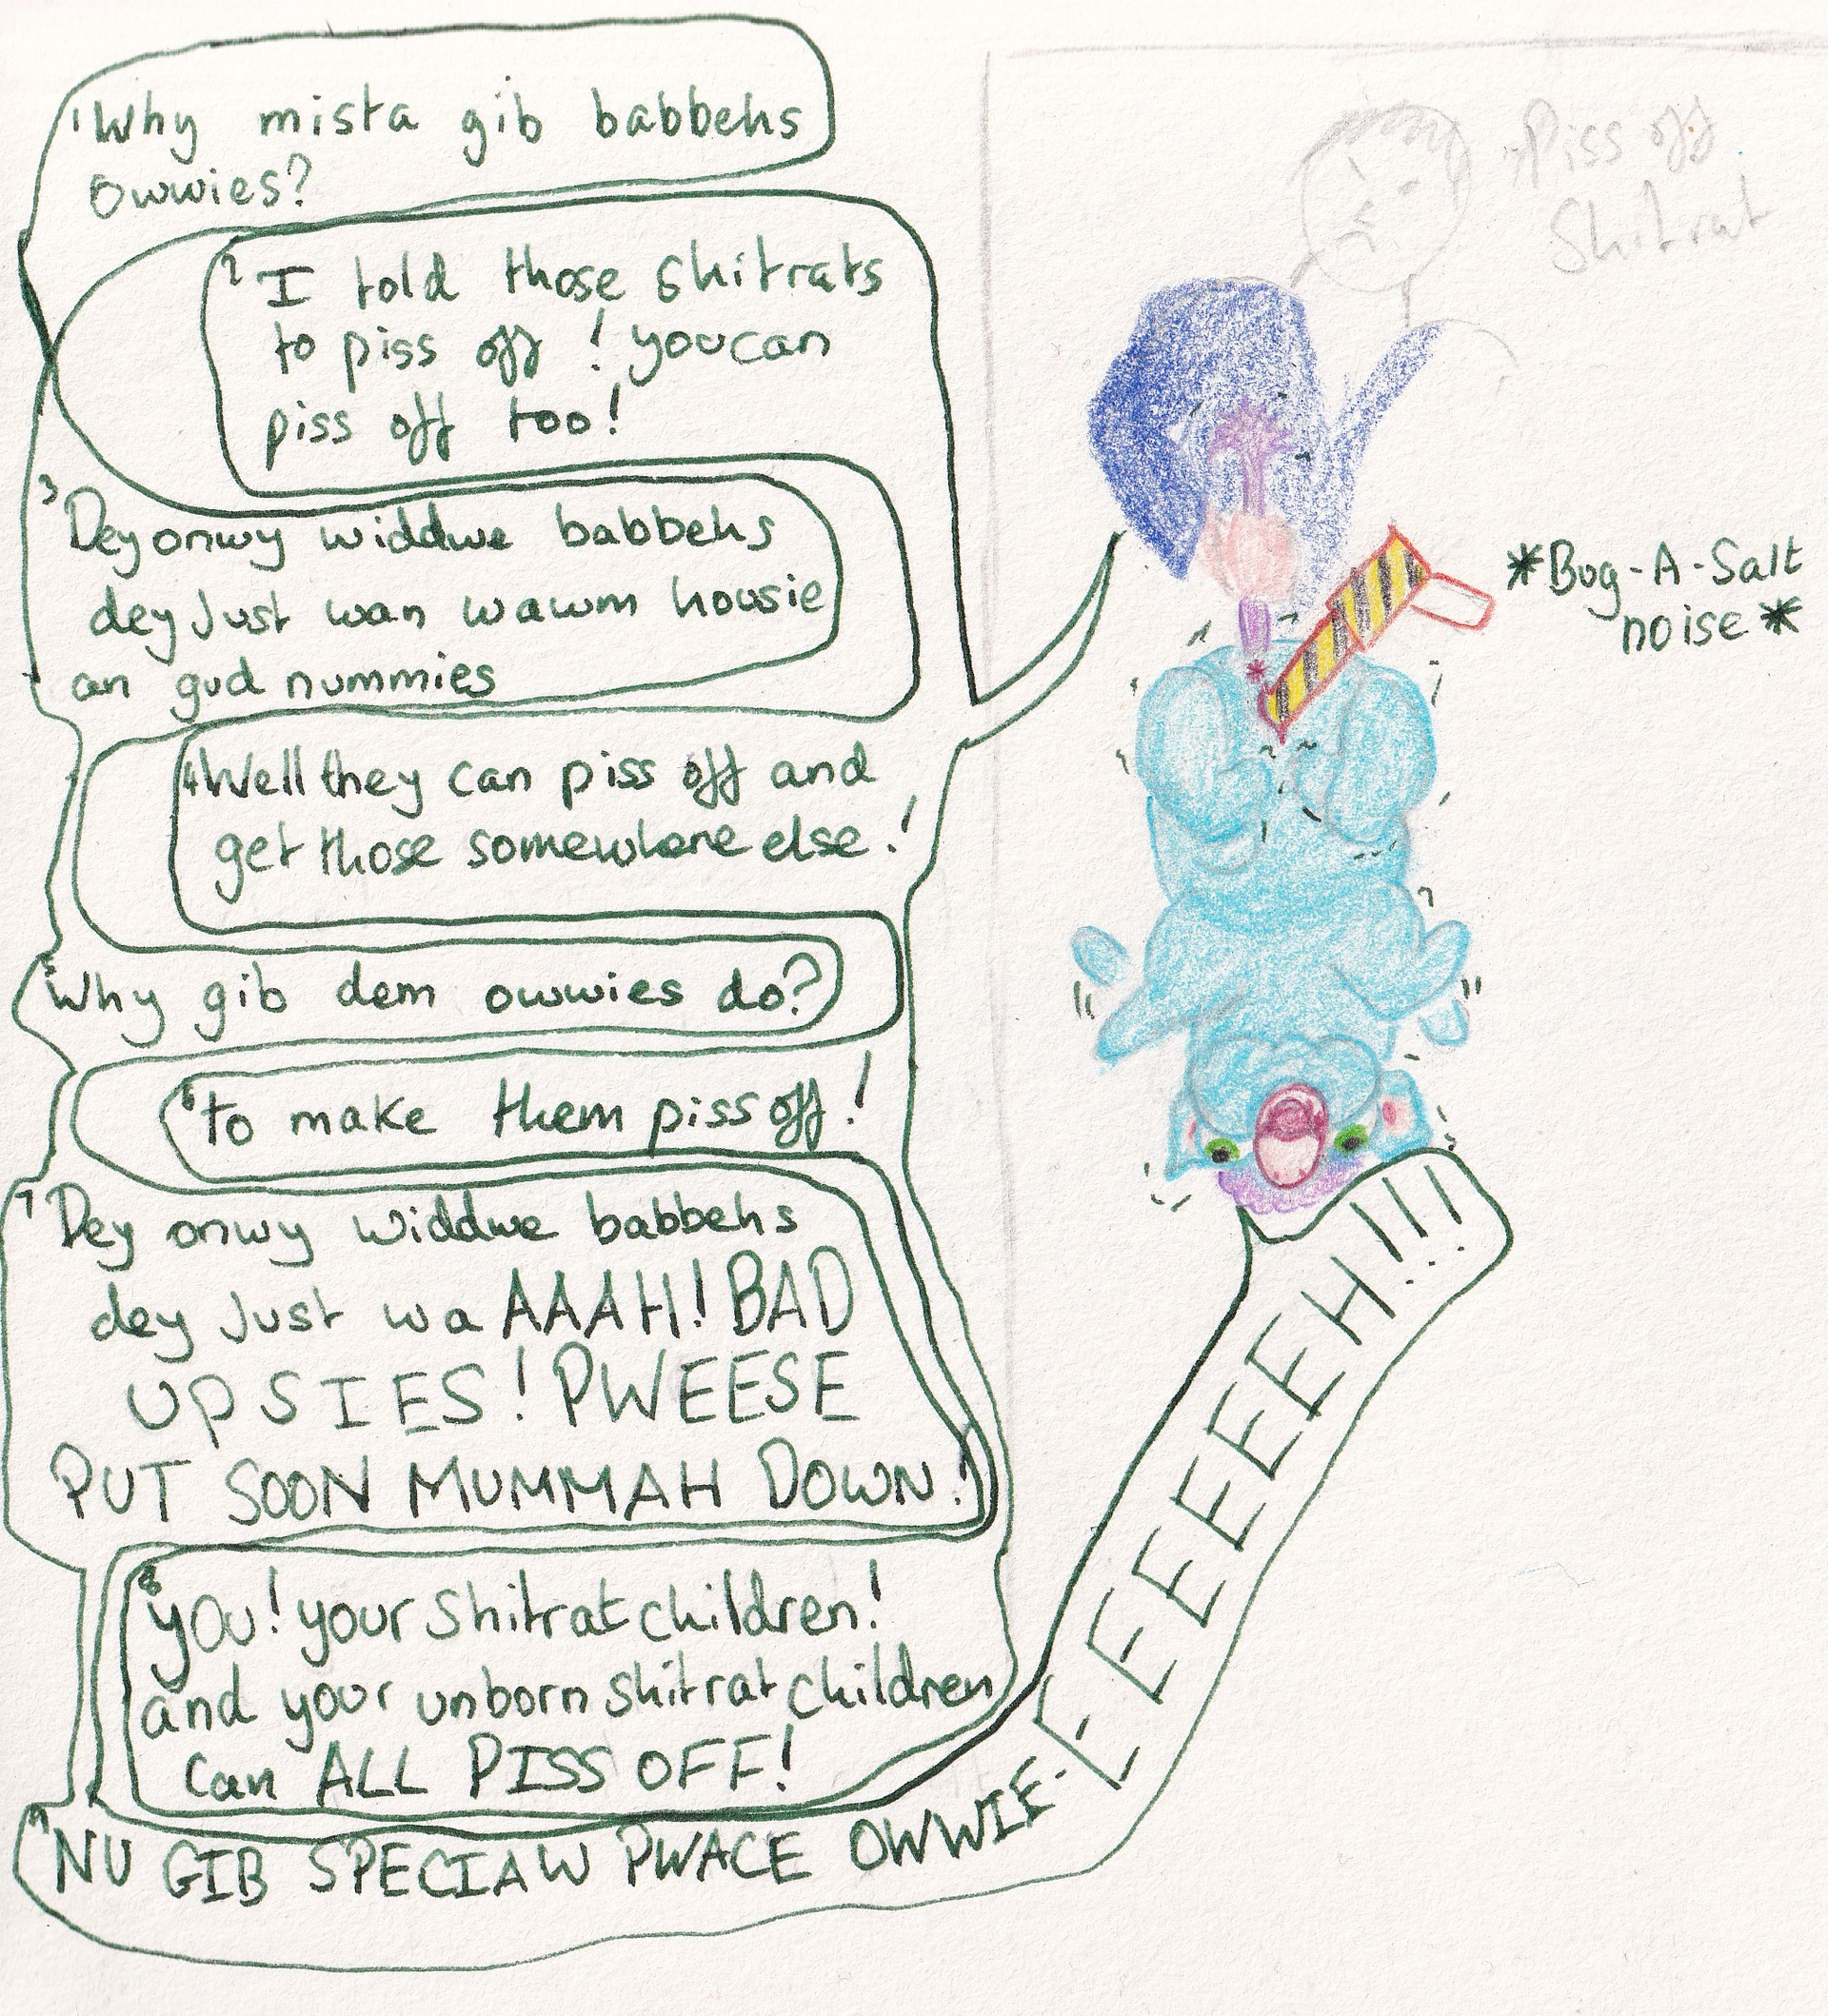 1 Why mista gib babbehs
owwies?
2 I told those shitrats
to piss off! you can
piss off too!
3 Dey onwy widdwe babbehs
dey Just wan wawm housie
an gud nummies
4 Well they can piss off and
get those somewhere else!
5 Why gib dem owwies do?
6 to make them piss off!
7 Dey onwy widdwe babbehs
dey Just wa AAAH! BAD
UPSIES! PWEESE
PUT SOON MUMMAH DOWN!
8 YOU! your shitrat children!
and your unborn shitrat children
Can ALL PISS OFF!
9 NU GIB SPECIAW PWACE OWWIE-EEEEEEEH!!!
Piss off
Shitrat
*Bug-A-Salt
noise*